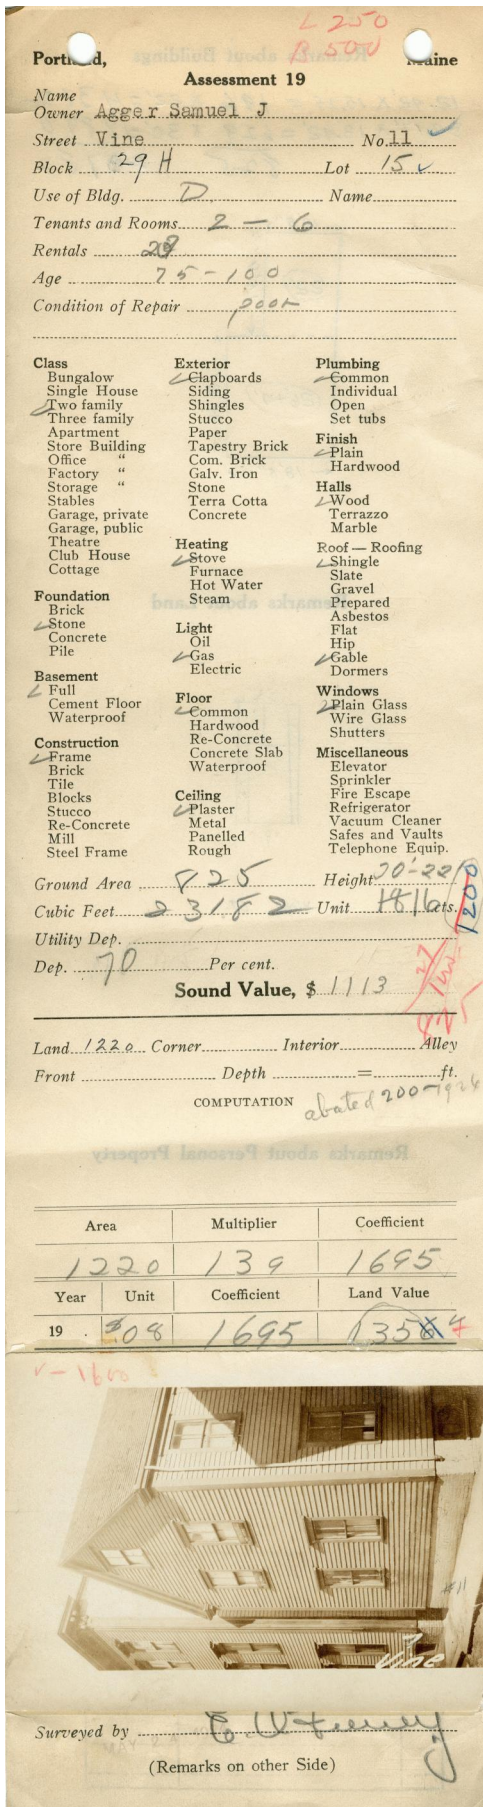 L 250
B 500
Portland, Maine
Assessment 19
Name
Owner Agger Samuel J
Street Vine No. 11
Block 29 H Lot 15
Use of Bldg. D. Name
Tenants and Rooms 2 - 6
Rentals
Age 75-100
Condition of Repair poor
Class
Bungalow
Single House
Two family
Three family
Apartment
Store Building
Office "
Factory "
Storage "
Stables
Garage, private
Garage, public
Theatre
Club House
Cottage
Foundation
Brick
Stone
Concrete
Pile
Basement
Full
Cement Floor
Waterproof
Construction
Frame
Brick
Tile
Blocks
Stucco
Re-Concrete
Mill
Steel Frame
Exterior
Clapboards
Siding
Shingles
Stucco
Paper
Tapestry Brick
Com. Brick
Galv. Iron
Stone
Terra Cotta
Concrete
Heating
Stove
Furnace
Hot Water
Steam
Light
Oil
Gas
Electric
Floor
Common
Hardwood
Re-Concrete
Concrete Slab
Waterproof
Ceiling
Plaster
Metal
Panelled
Rough
Plumbing
Common
Individual
Open
Set tubs
Finish
Plain
Hardwood
Halls
Wood
Terrazzo
Marble
Roof — Roofing
Shingle
Slate
Gravel
Prepared
Asbestos
Flat
Hip
Gable
Dormers
Windows
Plain Glass
Wire Glass
Shutters
Miscellaneous
Elevator
Sprinkler
Fire Escape
Refrigerator
Vacuum Cleaner
Safes and Vaults
Telephone Equip.
Ground Area 825 Height 20'-22
Cubic Feet 23182 Unit 16 cts.
1200
Utility Dep.
Dep. 70 Per cent.
Sound Value, $ 1113
425
Land 1220 Corner Interior Alley
Front Depth = ft.
COMPUTATION
abated 200-1924
Area Multiplier Coefficient
1220 139 1695
Year Unit Coefficient Land Value
19 .08 1695 135
v - 1600
#11
Vine
Surveyed by E. W. Feeney
(Remarks on other Side)